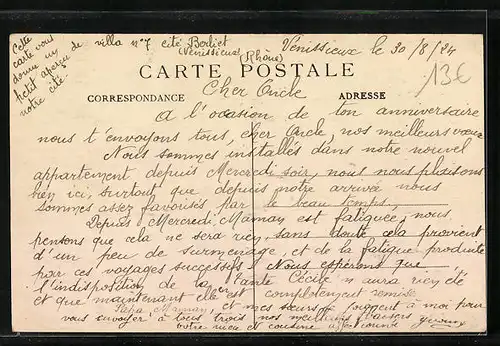 Cette
carte vous
donne un
petit aperçu de villa n°7 cité Berliet
notre cité
(Vénissieux) (Rhône)
Vénissieux le 30/8/24
13€
CARTE POSTALE
CORRESPONDANCE
ADRESSE
Cher Oncle
A l'ocasion de ton anniversaire
nous t'envoyons tous, cher Oncle, nos meilleurs vœux
Nous sommes installés dans notre nouvel
appartement depuis Mercredi soir, nous nous plaisons
bien ici, surtout que depuis notre arrivée nous
sommes assez favorisés par le beau temps,
Depuis Mercredi Maman est fatiguée, nous
pensons que cela ne sera rien, sans doute cela provient
d'un peu de surmenage, et de la fatigue produite
par ces voyages successifs. Nous espérons que
l'indisposition de la Tante Cécile n'aura rien été
et que maintenant elle est complètement remise
Papa, Maman, et mes sœurs se joignent à moi pour
vous envoyer à tous trois nos meilleurs baisers
votre nièce et cousine affectionnée